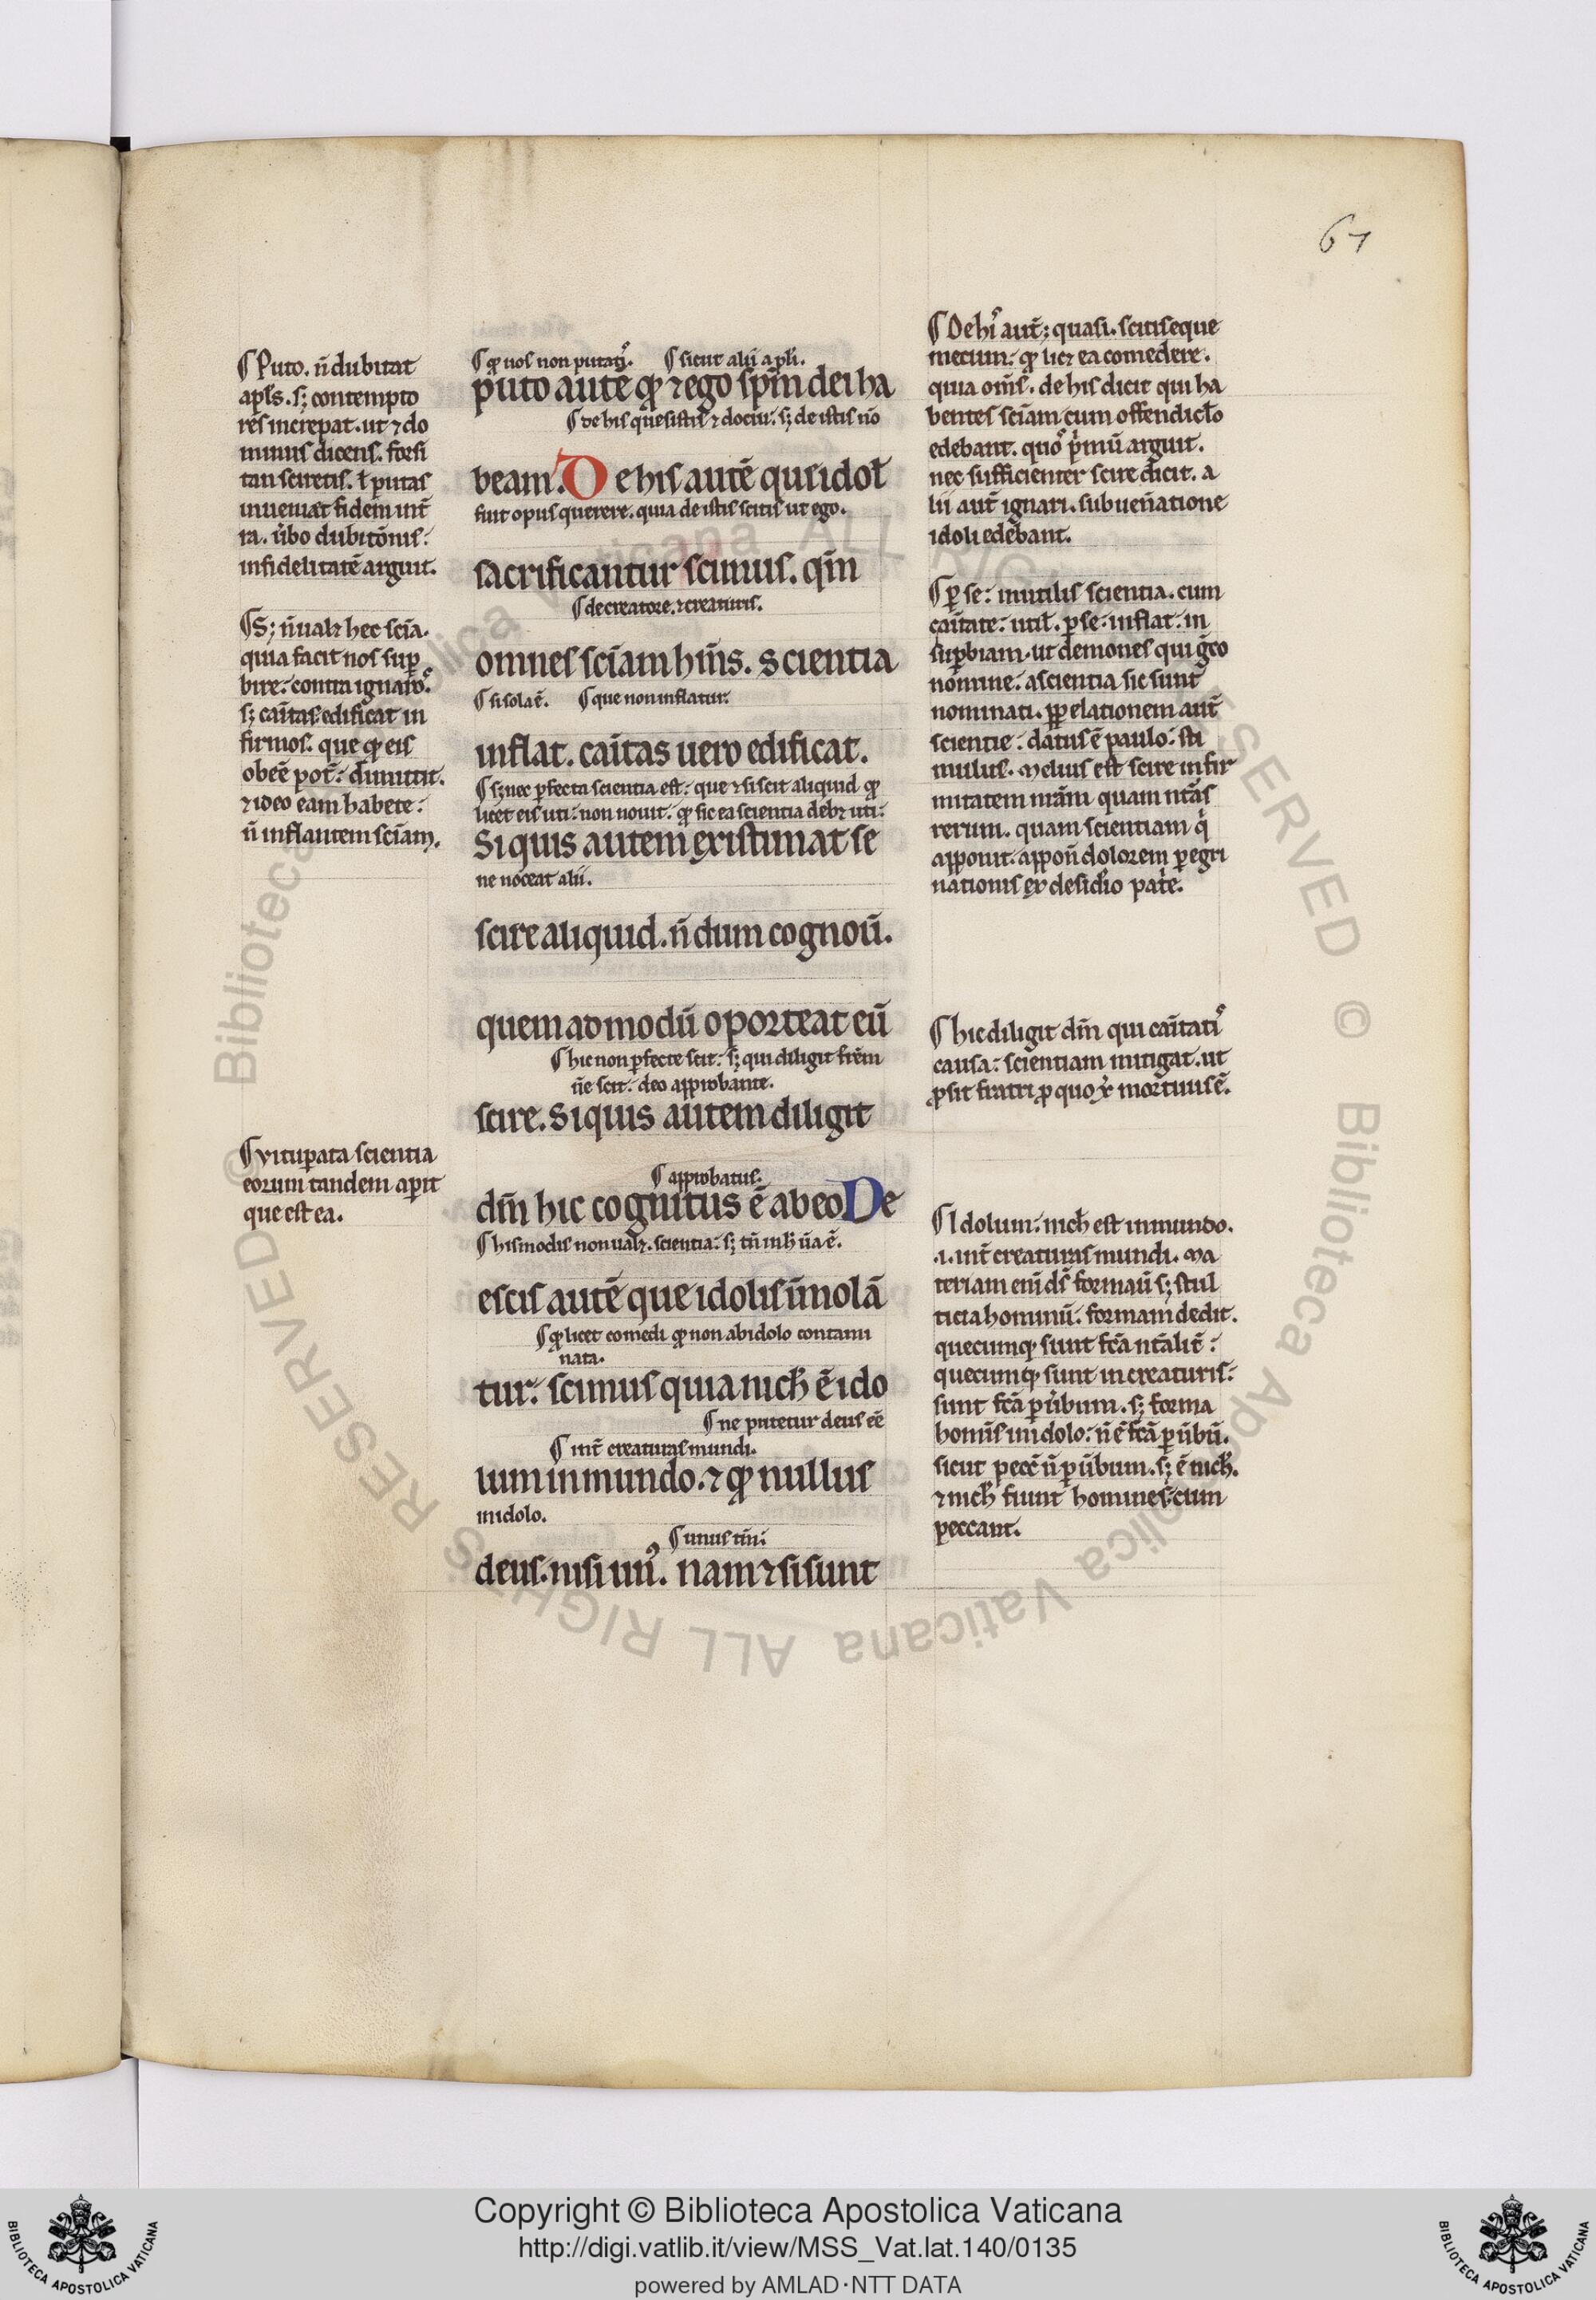 67
¶ Puto. ñ dubitat
apl̃s. s; contempto
res increpat. ut ⁊ do
minus dicens. forsi
tan sciretis. ł putas
inueniãt fidem int̃
ra. u̇bo dubitõnis:
infidelitatẽ arguit.
¶ S; ñ ualꝫ hec scĩa.
quia facit nos suꝑ
bire: contra ignaros.
s; caĩtas edificat in
firmos. que ꝙ eis
obeẽ pot̃: dimittit.
⁊ ideo eam habete:
ñ inflantem scĩam.
¶ Vituꝑata scientia
eorum tandem aꝑit
que est ea.
¶ ꝙ uos non putatis. ¶ sicut alii apl̃i.
puto autẽ ꝙ ⁊ ego sp̃m dei ha
¶ de his quesistis ⁊ docui. s; de istis nõ
beam. De his autẽ qũ idoł
fuit opus querere. quia de istis scitis ut ego.
sacrificantur scimus. qm̃
¶ de creatore. ⁊ creaturis.
omnes scĩam hm̃s. Scientia
¶ si sola ẽ. ¶ que non inflatur.
inflat. caĩtas uero edificat.
¶ s; nec ꝑfecta scientia est: que ⁊ si scit aliquid ꝙ
licet eis uti: non nouit. ꝙ sic ea scientia debꝫ uti:
Si quis autem existimat se
ne noceat alii.
scire aliquid. ñ dum cognoũ.
quemadmodũ oporteat eũ
¶ hic non ꝑfecte scit: s; qui diligit frẽm
ũe scit: deo approbante.
scire. Si quis autem diligit
¶ approbatus.
dm̃ hic cognitus ẽ ab eo De
¶ his modis non ualꝫ. scientia: s; tñ in h̃ ũa ẽ.
escis autẽ que idolis ĩmolã
¶ ꝙ licet comedi ꝙ non ab idolo contami
nata.
tur: scimus quia nich̃ ẽ ido
¶ ne putetur deus eẽ
¶ int̃ creaturas mundi.
lum in mundo. ⁊ ꝙ nullus
in idolo.
¶ unus tm̃:
deus. nisi unꝰ. nam ⁊ si sunt
¶ De his aut̃; quasi. scitis eque
mecum: ꝙ licꝫ ea comedere.
quia om̃s. de his dicit qui ha
bentes scĩam cum offendicl̃o
edebant. quos p̃mũ arguit.
nec sufficienter scire dicit. a
lii aut̃ ignari. sub ueñatione
idoli edebant.
¶ ꝑ se: inutilis scientia. cum
caĩtate: utił. ꝑ se: inflat: in
suꝑbiam. ut demones qui g̃co
nomine: a scientia sic sunt
nominati. ꝓꝑ elationem aut̃
scientie: datus ẽ paulo: sti
mulus. Melius est scire infir
mitatem nr̃am quam nt̃as
rerum. quam scientiam q̇
apponit. appoñ dolorem ꝑegri
nationis ex desiďio pat̃e.
¶ hic diligit dm̃ qui caĩtatis
causa: scientiam mitigat. ut
ꝓsit fratri ꝓ quo xp̃ mortuus ẽ.
¶ Idolum: nich̃ est in mundo.
.i. int̃ creaturas mundi. Ma
teriam eni᷈ ds̃ formaũ s; stul
ticia hominũ: formam dedit.
quecumqꝫ sunt fc̃a nt̃alit̃:
quecumqꝫ sunt in creaturis:
sunt fc̃a ꝑ u̇bum. s; forma
homĩs in idolo: ñ ẽ fc̃a ꝑ u̇bũ.
sicut pecc̃ ñ ꝑ u̇bum. s; ẽ nich̃.
⁊ nich̃ fiunt homines: cum
peccant.
Copyright © Biblioteca Apostolica Vaticana
http://digi.vatlib.it/view/MSS_Vat.lat.140/0135
powered by AMLAD·NTT DATA
BIBLIOTECA APOSTOLICA VATICANA
BIBLIOTECA APOSTOLICA VATICANA
© Biblioteca Apostolica Vaticana ALL RIGHTS RESERVED
© Biblioteca Apostolica Vaticana ALL RIGHTS RESERVED